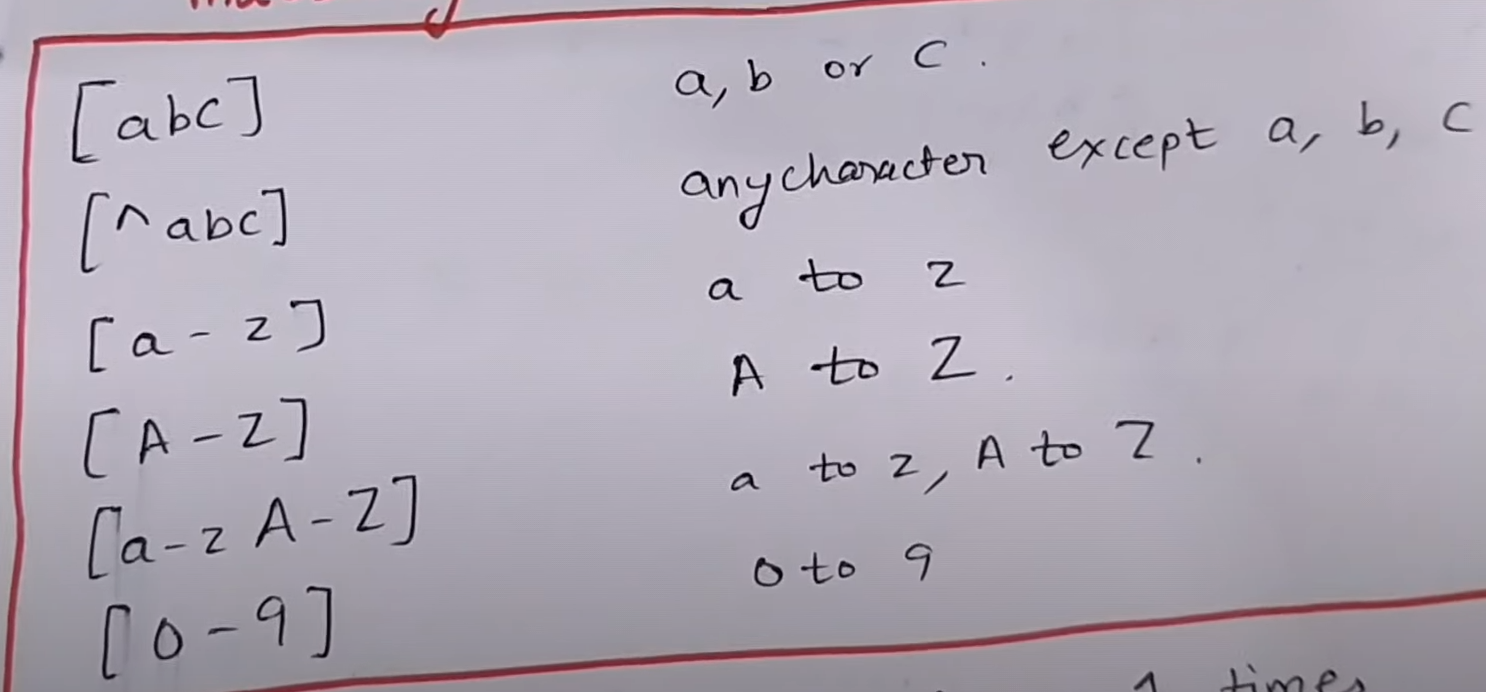 [abc] a, b or c.
[^abc] any character except a, b, c
[a-z] a to z
[A-Z] A to Z.
[a-z A-Z] a to z, A to Z.
[0-9] 0 to 9
1 times